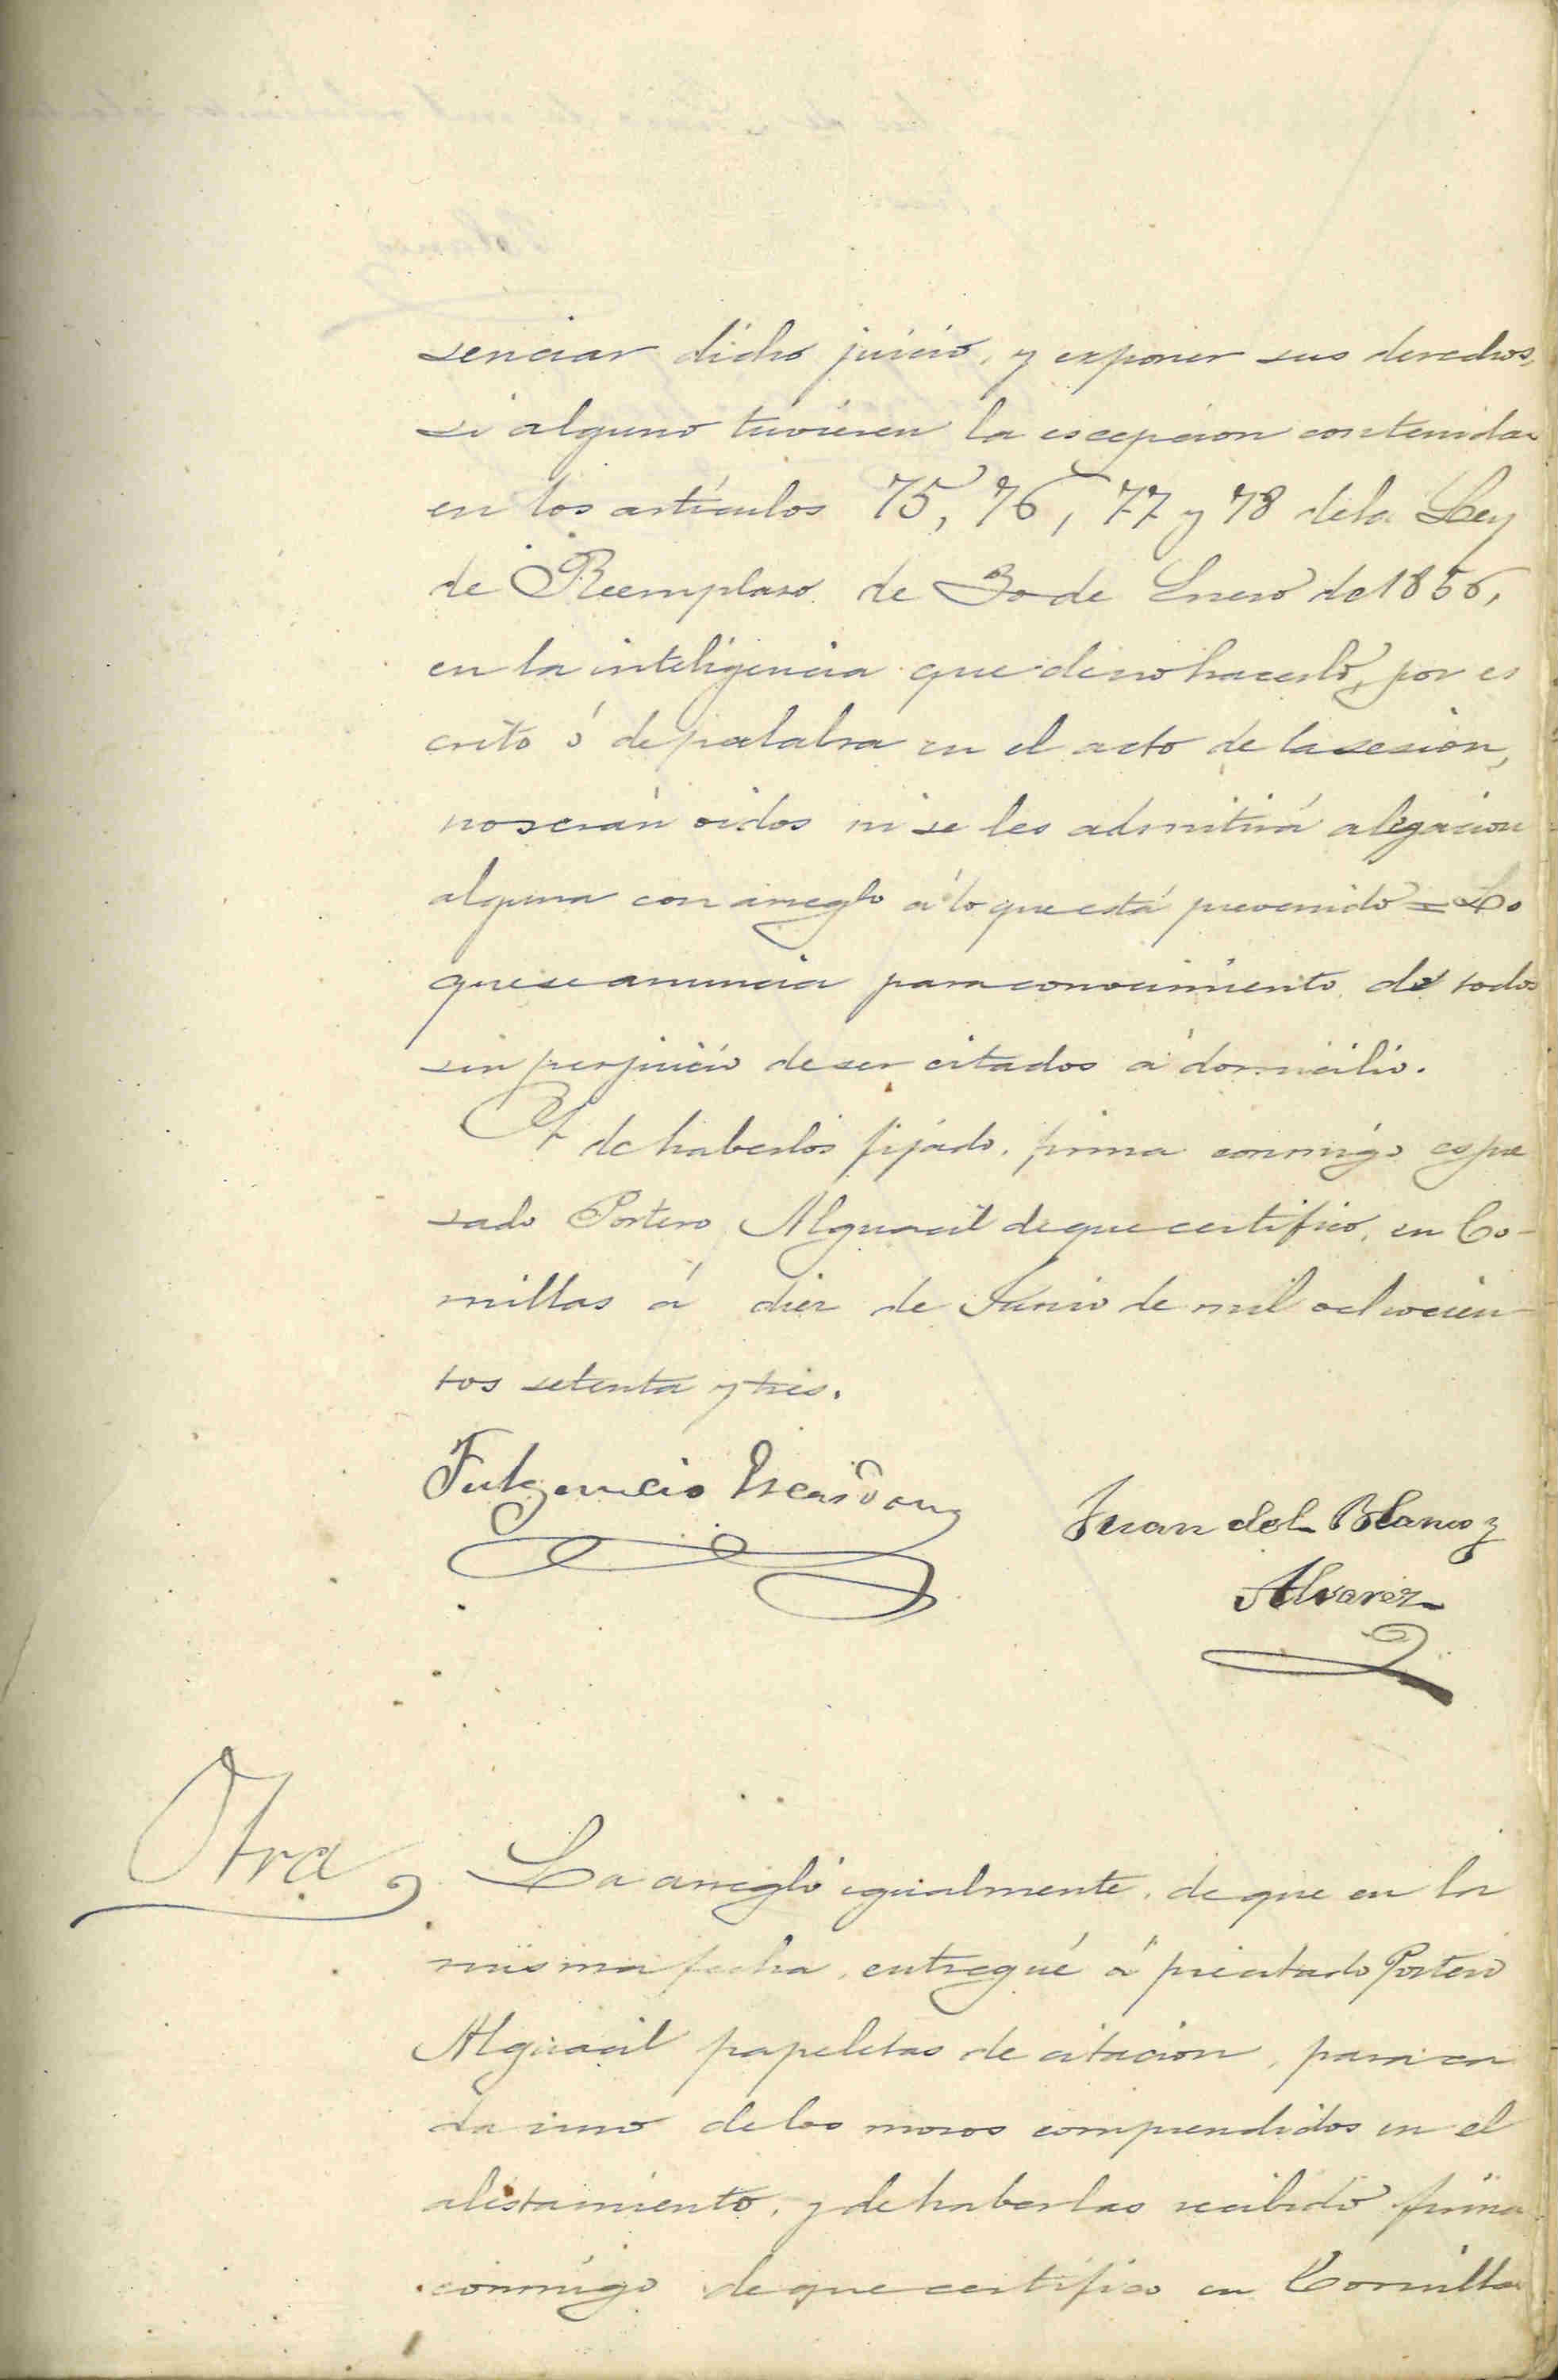 senciar dicho juicio, y exponer sus derechos,
si alguno tuvieren la escepcion contenida
en los artículos 75, 76, 77 y 78 de la Ley
de Reemplaso de 30 de Enero de 1856,
en la inteligencia que de no hacerlo, por es
crito ó de palabra en el acto de la sesion,
no serán oidos ni se les admitirá alegacion
alguna con arreglo á lo que está prevenido = Lo
que se anuncia para conocimiento de todos
sin perjuicio de ser citados á domicilio.
Y de haberlos fijado, firma conmigo espre
sado Portero Alguacil de que certifico, en Co-
millas á diez de Junio de mil ochocien-
tos setenta y tres.
Fulgencio
Juan del Blanco y
Alvarez
Otra
La arreglo igualmente, de que en la
misma fecha, entregué á precitado Portero
Alguacil papeletas de citacion, para ca
da uno de los mozos comprendidos en el
alistamiento, y de haberlas recibido firma
conmigo de que certifico en Comillas